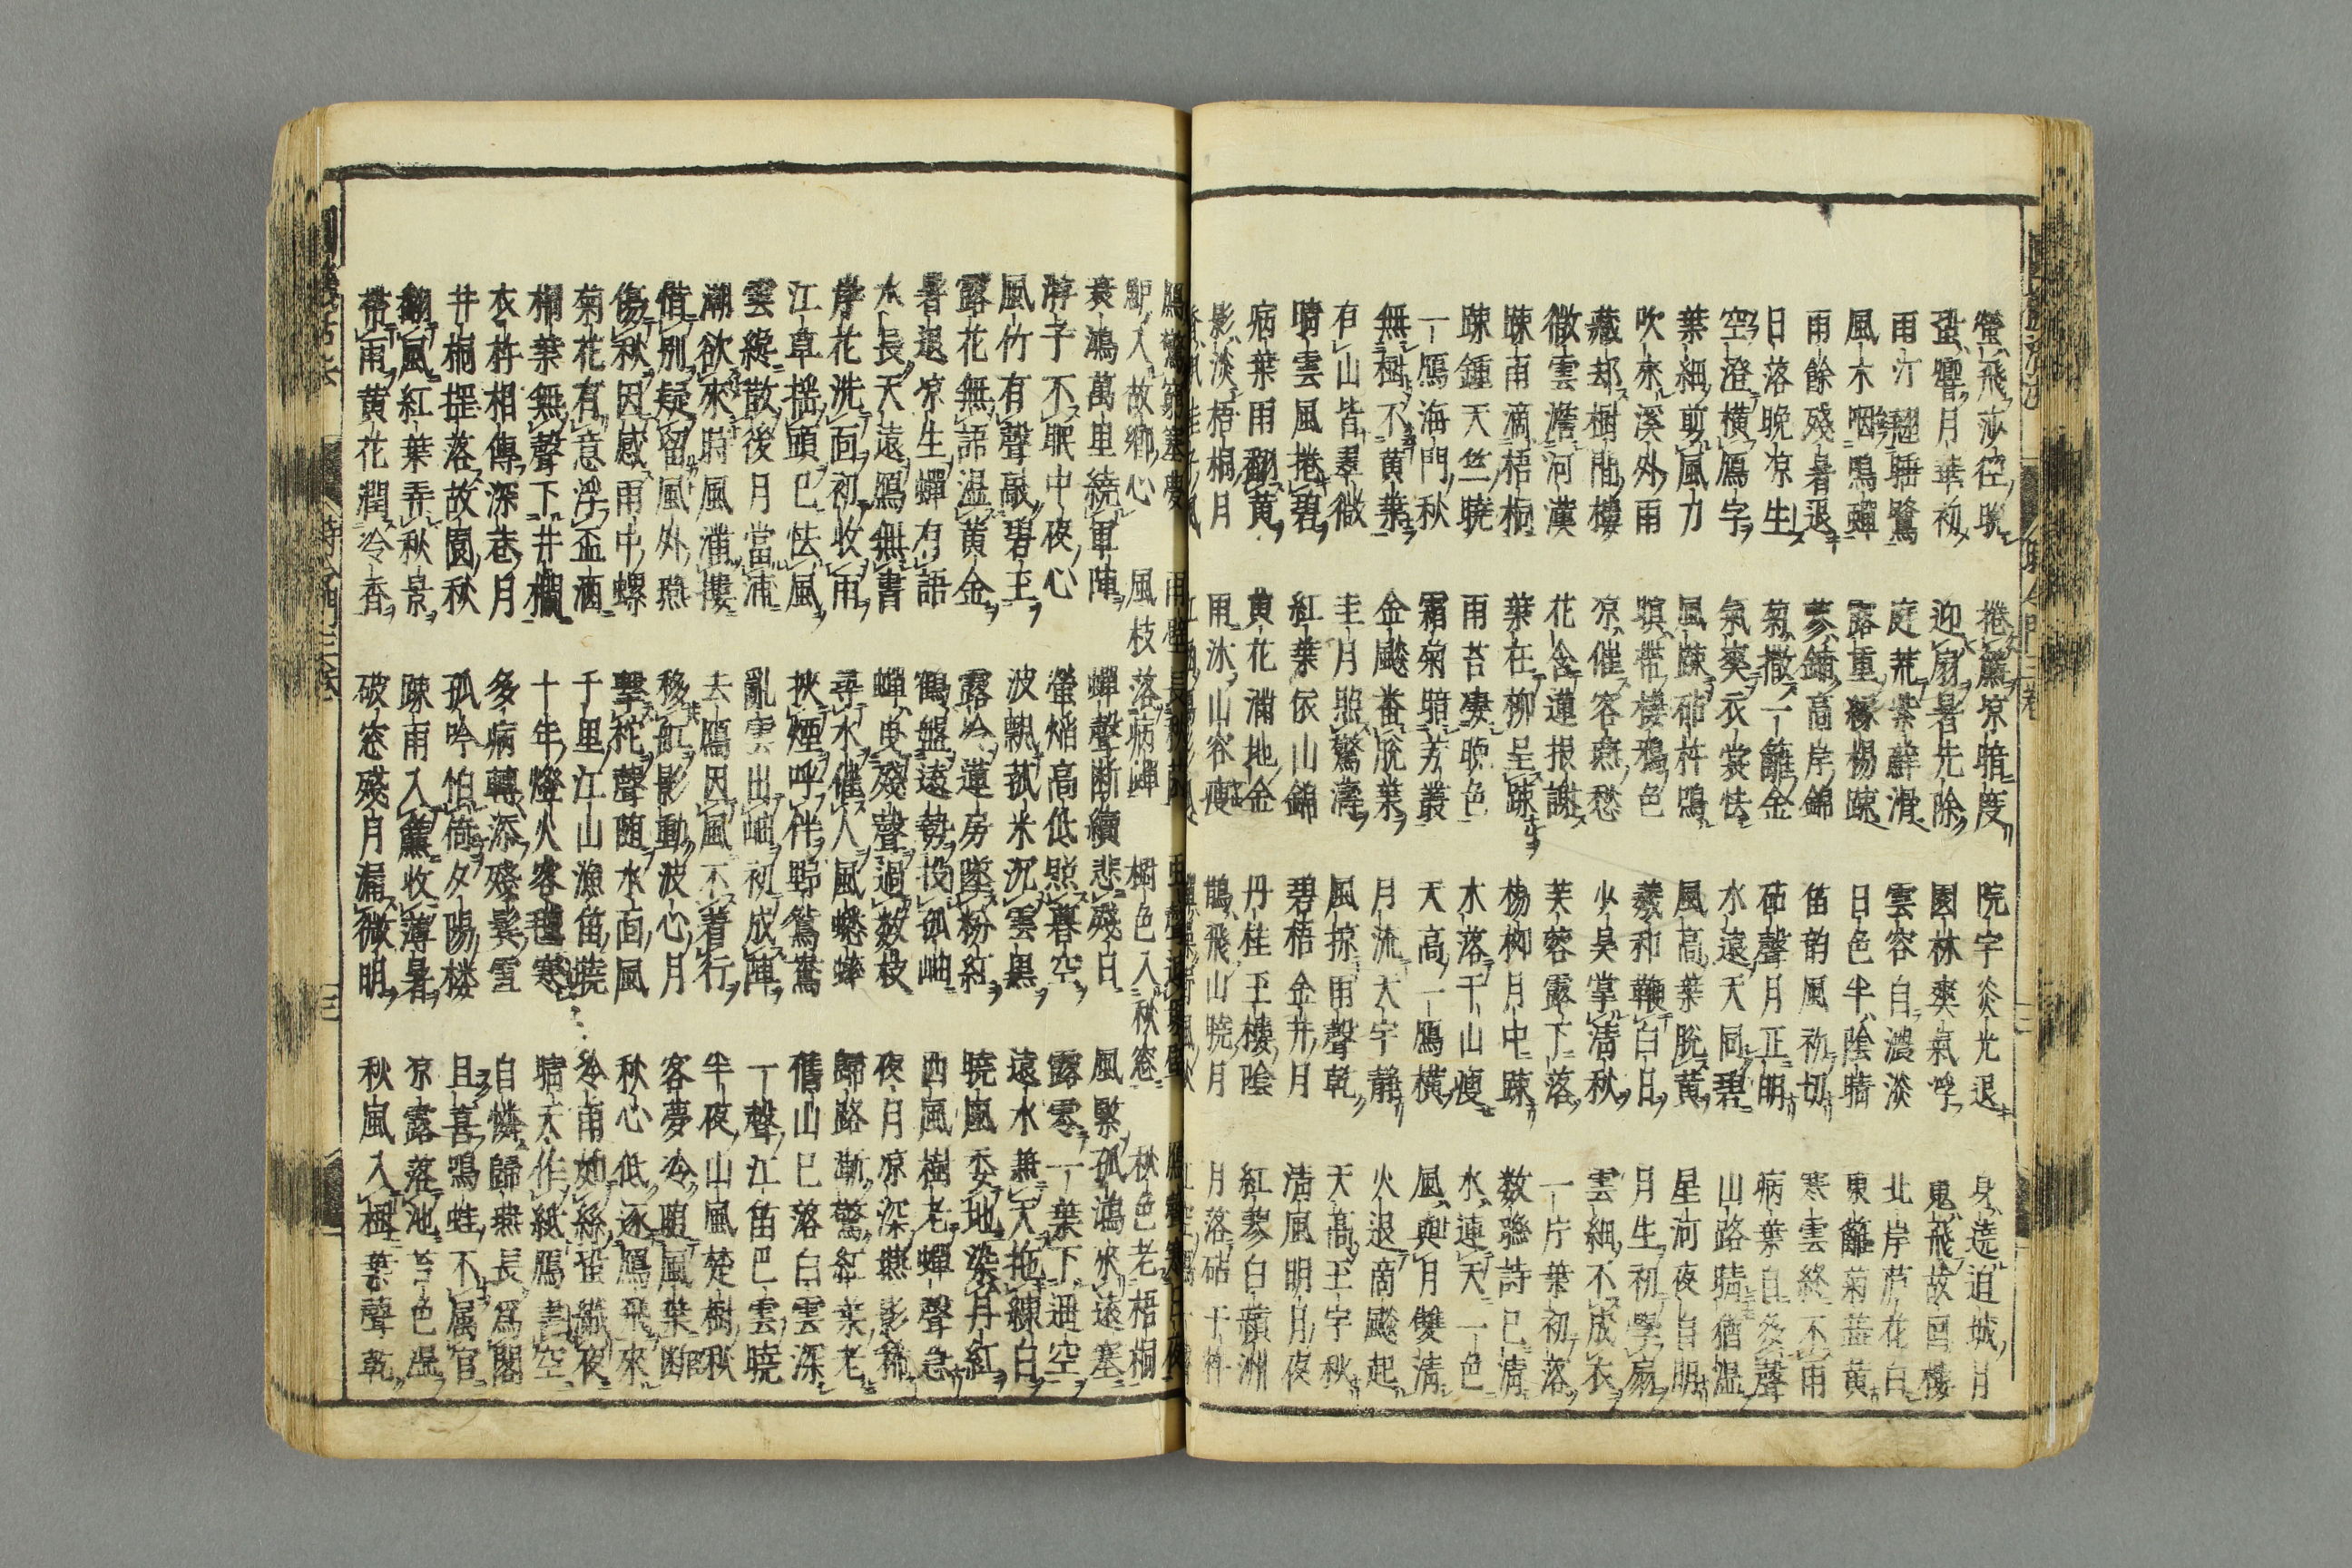 螢飛莎径晩 捲簾凉暗度 院宇炎光退 身造迫城月
蛩響月華初 迎扇暑先除 園林爽氣浮 鬼飛故国樓
雨汀翹睡鷺 庭荒紫蘚滑 雲容白濃淡 北岸芦花白
風木咽鳴蟬 露重緑楊疎 日色半陰晴 東籬菊蕋黄
雨餘殘暑退 蓼鋪高岸錦 笛韵風初切 寒雲終不雨
日落晩凉生 菊撒一籬金 砧聲月正明 病葉自多聲
空澄横鴈字 氣爽衣裳怯 水遠天同碧 山路晴猶湿
葉細剪風力 風疎砧杵鳴 風高葉脱黄 星河夜自明
吹來溪外雨 帯棲鴉色 羲和鞭白日 月生初學扇
藏却樹間樓 凉催容燕愁 少昊掌清秋 雲細不成衣
微雲澹河漢 花含蓮報謝 芙蓉露下落 一片葉初落
疎雨滴梧桐 葉在柳呈疎 楊柳月中疎 数聯詩已清
疎鍾天竺曉 雨苔凄晩色 木落千山痩 水連天一色
一鴈海門秋 霜菊暗芳叢 天高一鴈横 風與月雙清
無樹不黄葉 金飈番脱葉 月流大宇静 火退商飈起
有山皆翠微 圭月照驚濤 風掠雨聲乾 天高玉宇秋
晴雲風捲碧 紅葉依山錦 碧梧金井月 清風明月夜
病葉雨翻黄 黄花満地金 丹桂玉樓陰 紅蓼白蘋洲
影淡梧桐月 雨氷山容痩 鵲飛山曉月 月落砧千杵
鴈驚窮塞夢
鄊入故郷心 風枝落病蟬 桐色入秋窓 秋色老梧桐
衰鴻萬里繞軍陣 蟬聲断續悲殘日 風緊孤鴻來遠塞
浮子不眠中夜心 螢焔高低照暮空 露零一葉下迴空
風竹有聲敲碧玉 波飄菰米沉雲黒 遠水無天拖練白
露花無語湿黄金 露冷蓮房墜粉紅 曉風委地染丹紅
暑退凉生蟬有語 鶴盤遠勢投孤岫 西風樹老蟬聲急
水長天遠鴈無書 蟬曳殘聲過数枝 夜月凉深燕影稀
岸花洗面初收雨 尋水催人風蟋蟀 歸路漸驚紅葉老
江草揺頭已怯風 挾煙呼伴野鴛鴦 舊山已落白雲深
雲縱散後月當浦 亂雲出岫初成陣 一聲江笛巴雲曉
潮欲來時風満摟 去鴈因風不着行 半夜山風楚樹秋
惜別疑留風外燕 移舡影動波心月 客夢冷随風葉断
傷秋因感雨中螺 撃柁聲随水面風 秋心低逐鴈飛來
菊花有意浮盃酒 千里江山漁笛曉 冷雨如絲蛩織夜
桐葉無聲下井欄 十年燈火客氊寒 晴天作紙鴈書空
衣杵相傳深巷月 多病轉添殘鬂雪 自憐歸燕長為閣
井桐揺落故園秋 孤吟怕倚夕陽楼 且喜鳴蛙不属官
翻風紅葉弄秋景 疎雨入薫收薄暑 凉露落池苔色湿
帯雨黄花潤冷香 破窓殘月漏微明 秋風入極葉聲乾